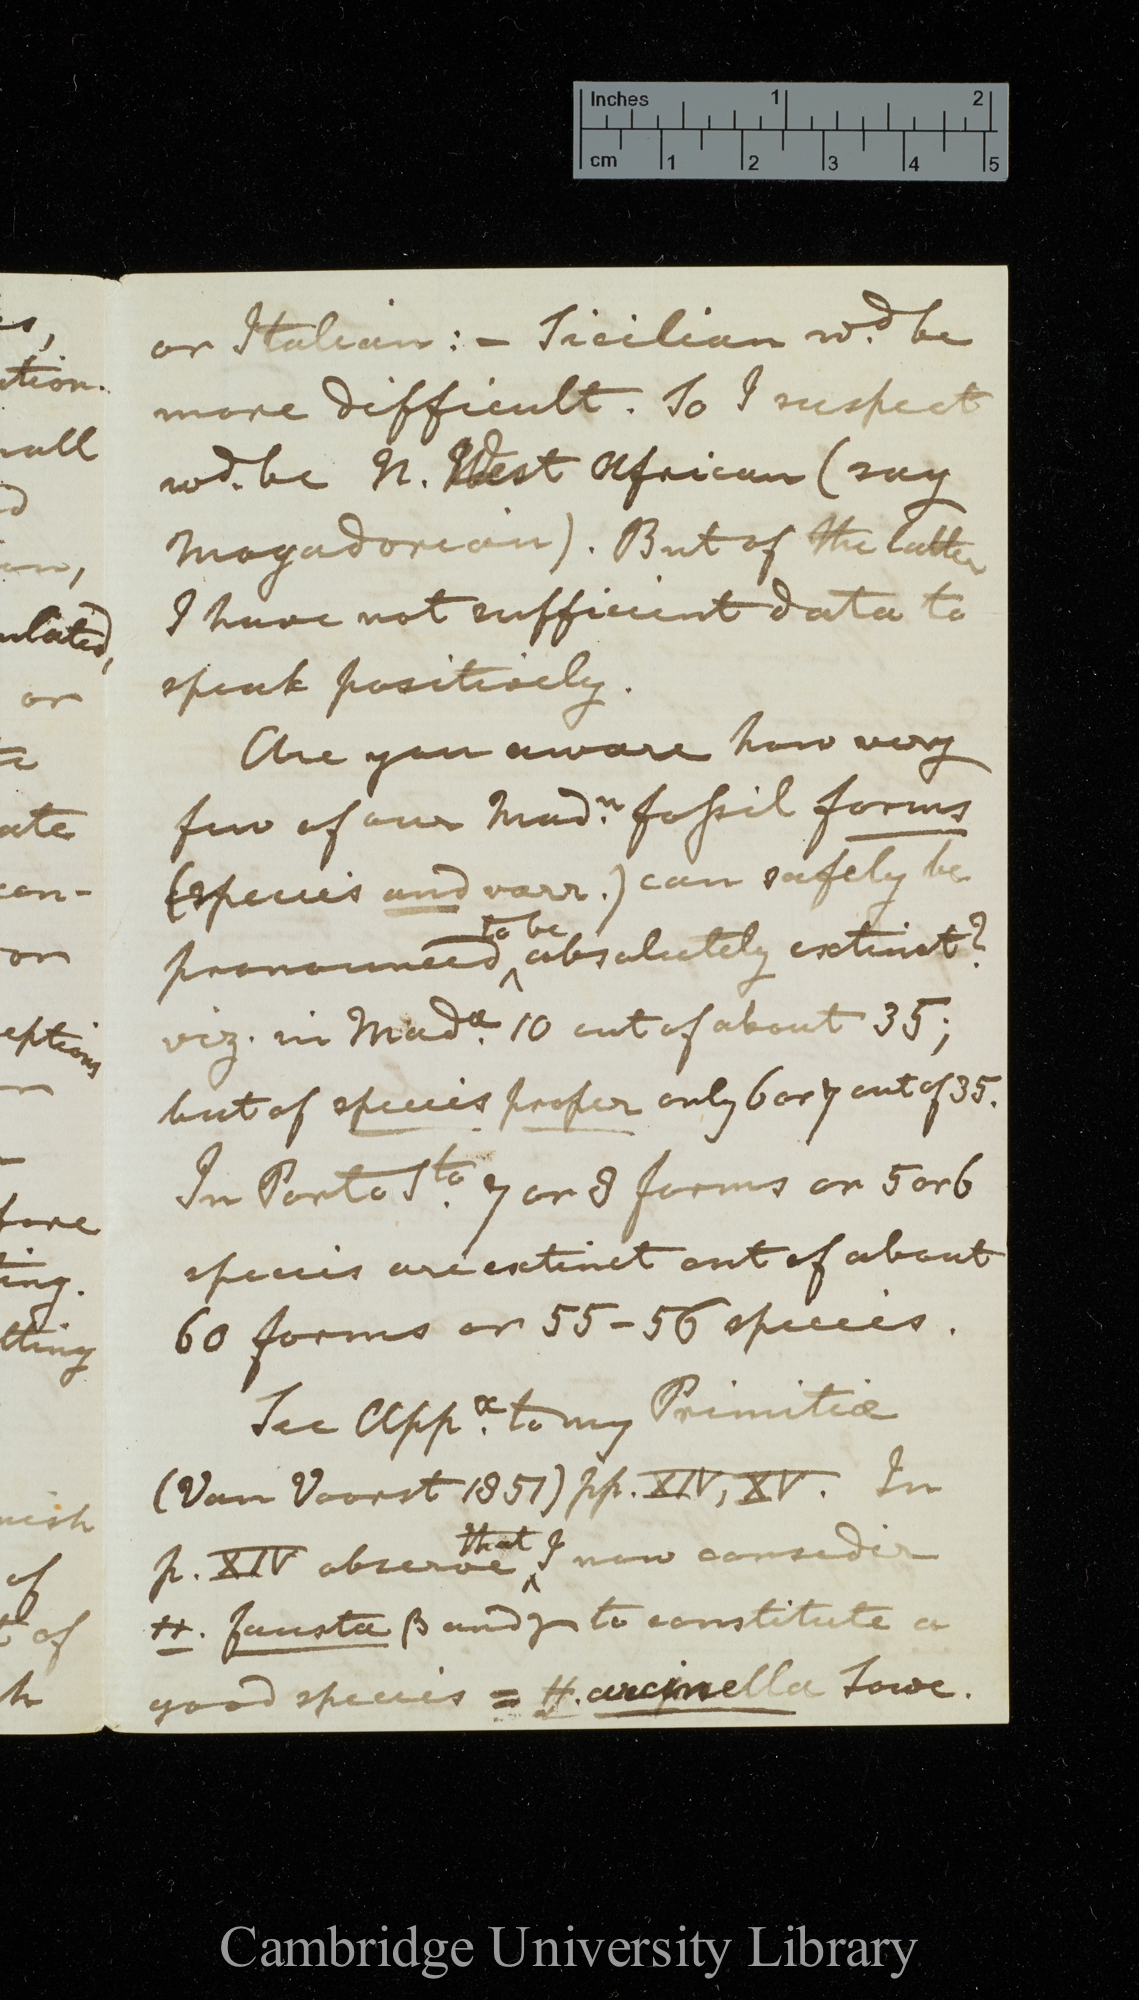 Inches 1 2
cm 1 2 3 4 5
or Italian: – Sicilian wd. be
more difficult. So I suspect
wd. be N. West African (say
Mogadorian). But of the latter
I have not sufficient data to
speak positively.
Are you aware how very
few of our Madn. fossil forms
(species and varr.) can safely be
pronounced to be absolutely extinct?
viz. in Mada. 10 out of about 35;
but of species proper only 6 or 7 out of 35.
In Porto Sto. 7 or 8 forms or 5 or 6
species are extinct out of about
60 forms or 55–56 species.
See Appx. to my Primitiæ
(Van Voorst 1851) pp. XIV, XV. In
p. XIV observe that I now consider
H. fausta β and γ to constitute a
good species = H. arcinella Lowe.
es,
ation.
mall
d
ulated,
or
ate
con-
on
eptions
fore
ting.
tting
nish
of
t of
h
Cambridge University Library